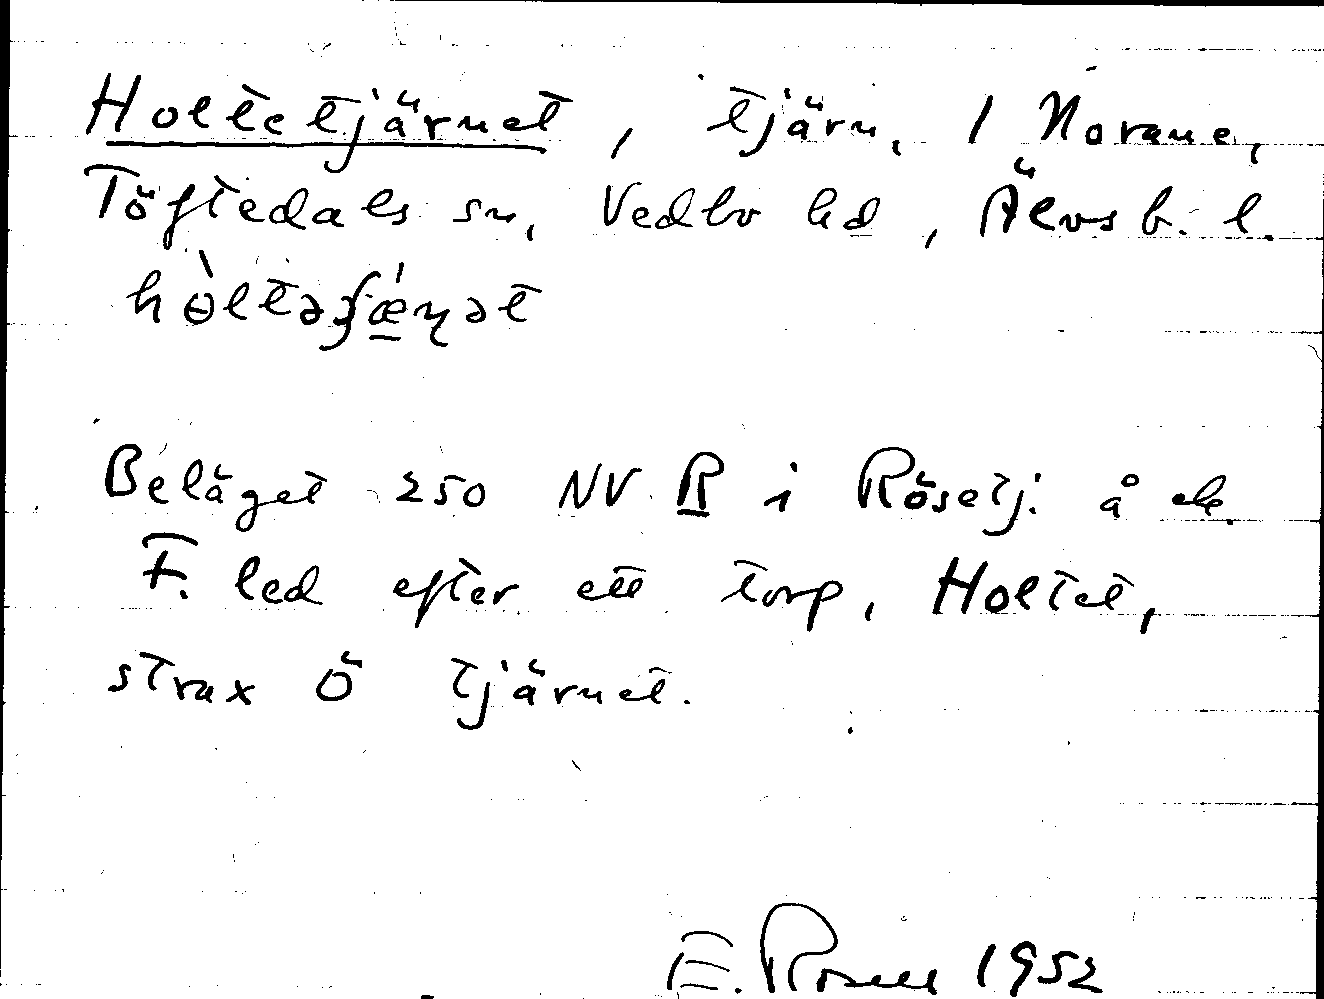 Holtetjärnet, tjärn, 1 Norane,
Töftedals sn, Vedbo hd, Älvsb. l.
hòltəʃæ̀ɳət
Beläget 250 NV R i Rösetj. å ek.
F. led efter ett torp, Holtet,
strax Ö tjärnet.
E. 1952